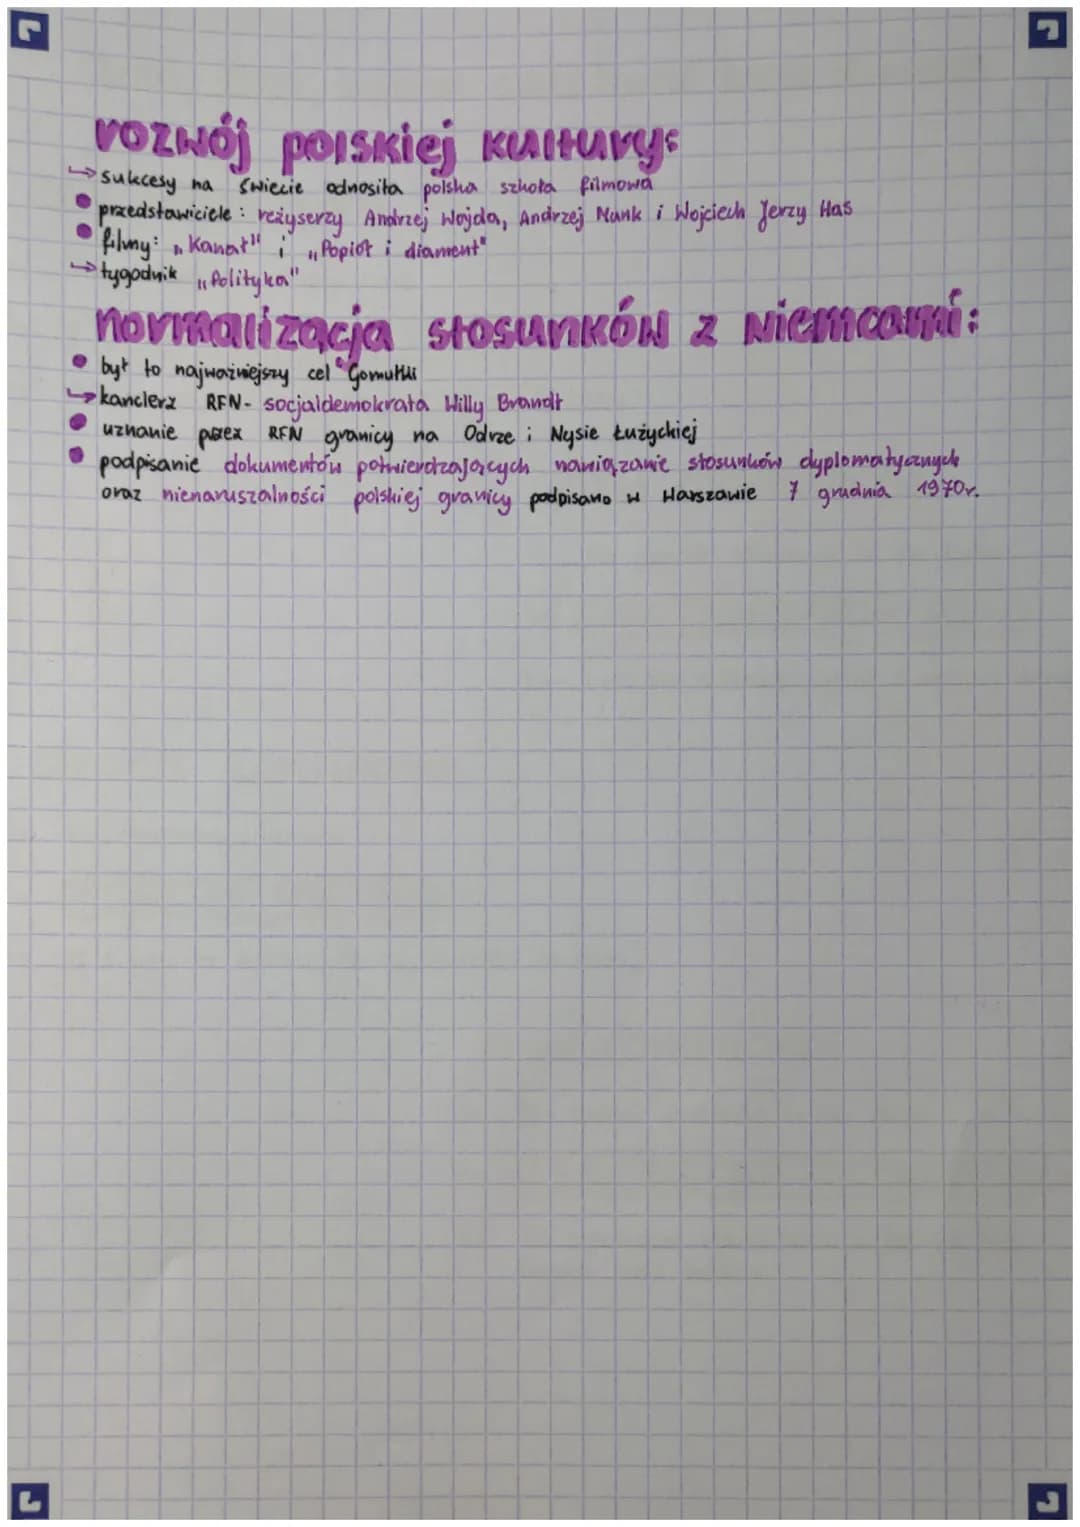 rozwój polskiej kultury:
→ sukcesy na świecie odnosiła polska szkoła filmowa
• przedstawiciele: reżyserzy Andrzej Wajda, Andrzej Munk i Wojciech Jerzy Has
• filmy: „Kanał" i „Popiół i diament"
→ tygodnik „Polityka"
normalizacja stosunków z Niemcami:
• był to najważniejszy cel Gomułki
→ kanclerz RFN- socjaldemokrata Willy Brandt
• uznanie przez RFN granicy na Odrze i Nysie Łużyckiej
• podpisanie dokumentów potwierdzających nawiązanie stosunków dyplomatycznych
oraz nienaruszalności polskiej granicy podpisano w Warszawie 7 grudnia 1970r.